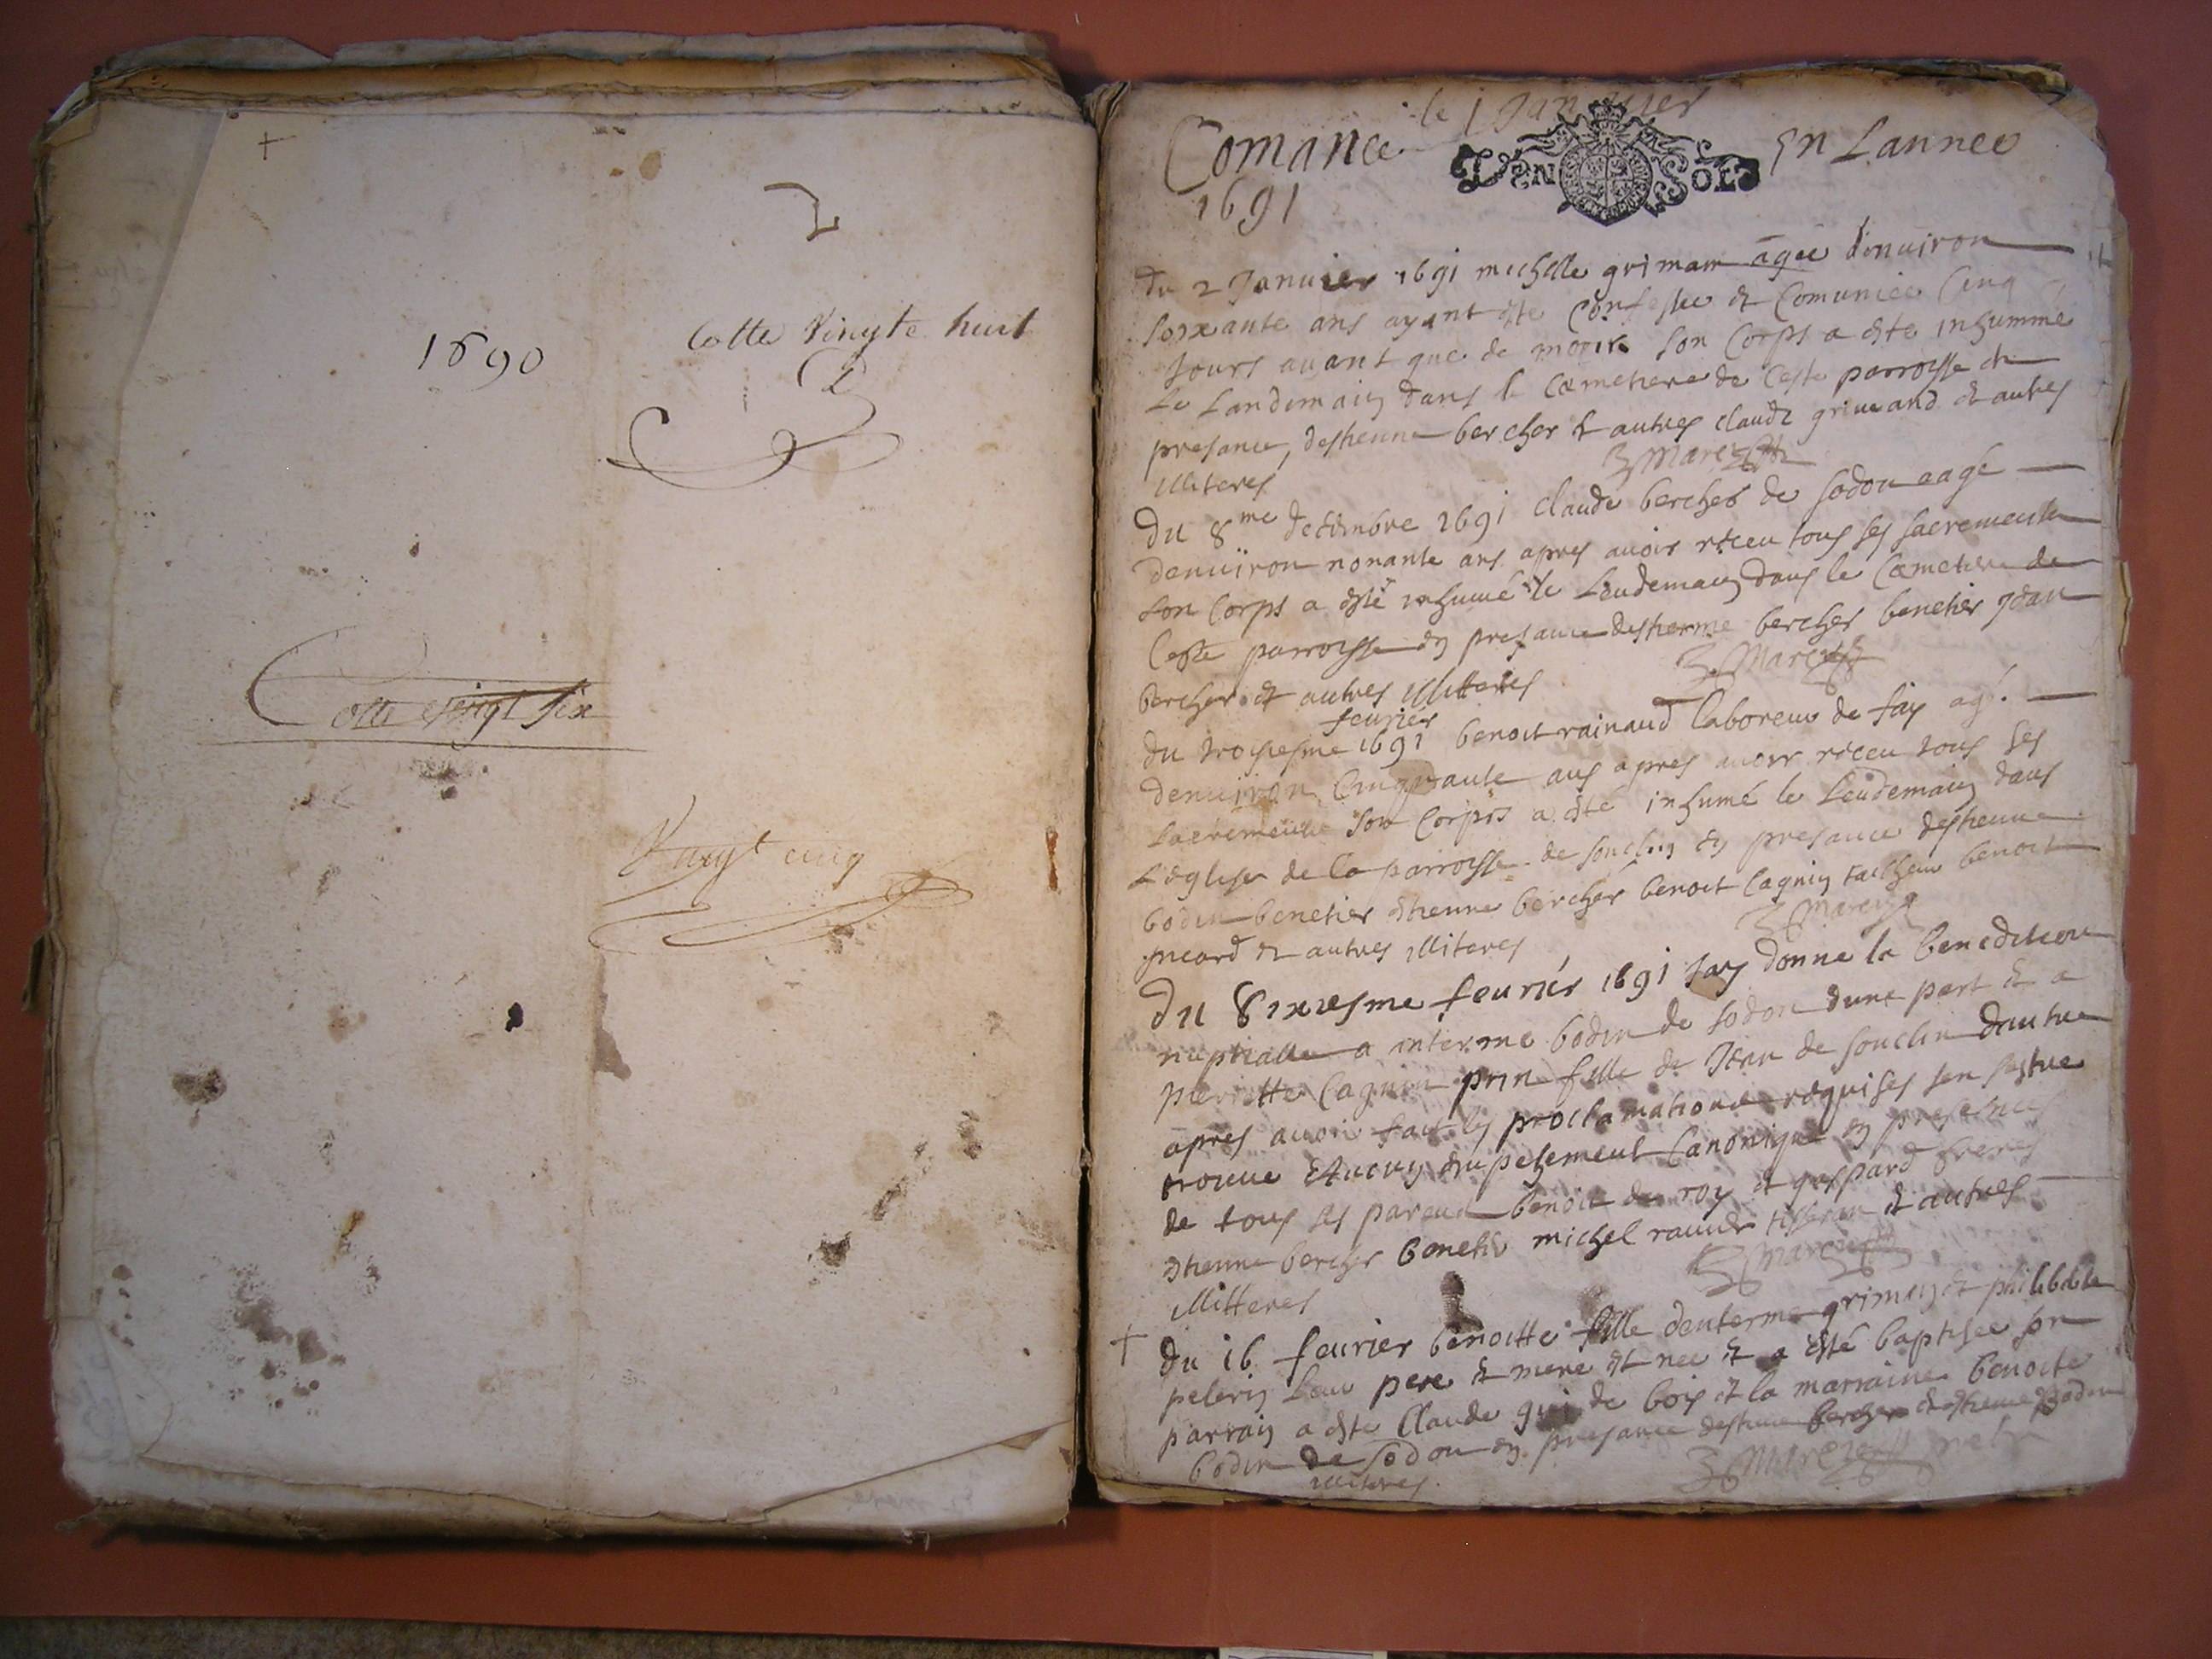 1690
Cotte Vingte huit
Cotte vingt six
Vingt cinq
le 1 Janvier
Comance DEN SOLS En Lannee
1691
Du 2 Januier 1691 michelle grimam âgée d'enuiron
soixante ans ayant este Confessee et Comuniee Cinq
Jours auant que de morir son Corps a este inhummé
Le Landemain dans le Cœmetiere de Ceste parroisse
presance, destienne bercher et autres claude grimand et autres
illiteres
Du 8me decembre 1691 Claude bercher de sodon aagé
denuiron nonante ans apres auoir reçeu tous ses sacrements
son Corps a esté inhumé le Lendemain dans le Cœmetiere de
Ceste parroisse en presance destienne bercher benetier
bercher et autres illitteres
feurier
du troisiesme 1691 benoit rainaud laboreur de fay agé
denuiron Cinquante ans apres auoir reçeu tous ses
sacremens son Corps a esté inhumé le Lendemain dans
L'eglise de la parroisse de souclin en presance destienne
bodin benetier estienne bercher benoit Cagnin benoit
picard et autres illiteres
Du 8ixiesme feurier 1691 Jay donne la benediction
nuptialle a anterme bodin de sodon dune part et a
pierrette Cagnin fille de Jean de souclin dautre
apres auoir fait les proclamations requises sen sestre
trouue Aucun empeschement Canonique en presence
de tous les parens benoit du roy et gaspard freres
estienne bercher benetier michel rauier tisseran et autres
illitteres
du 16 feurier benoitte fille denterme grimam et philiberte
pelerin leur pere et mere est nee et a esté baptisee son
parrain a este Claude gui de bois et la marraine benoite
bodin de sodon en presance destienne bercher et estienne bodin
illiteres